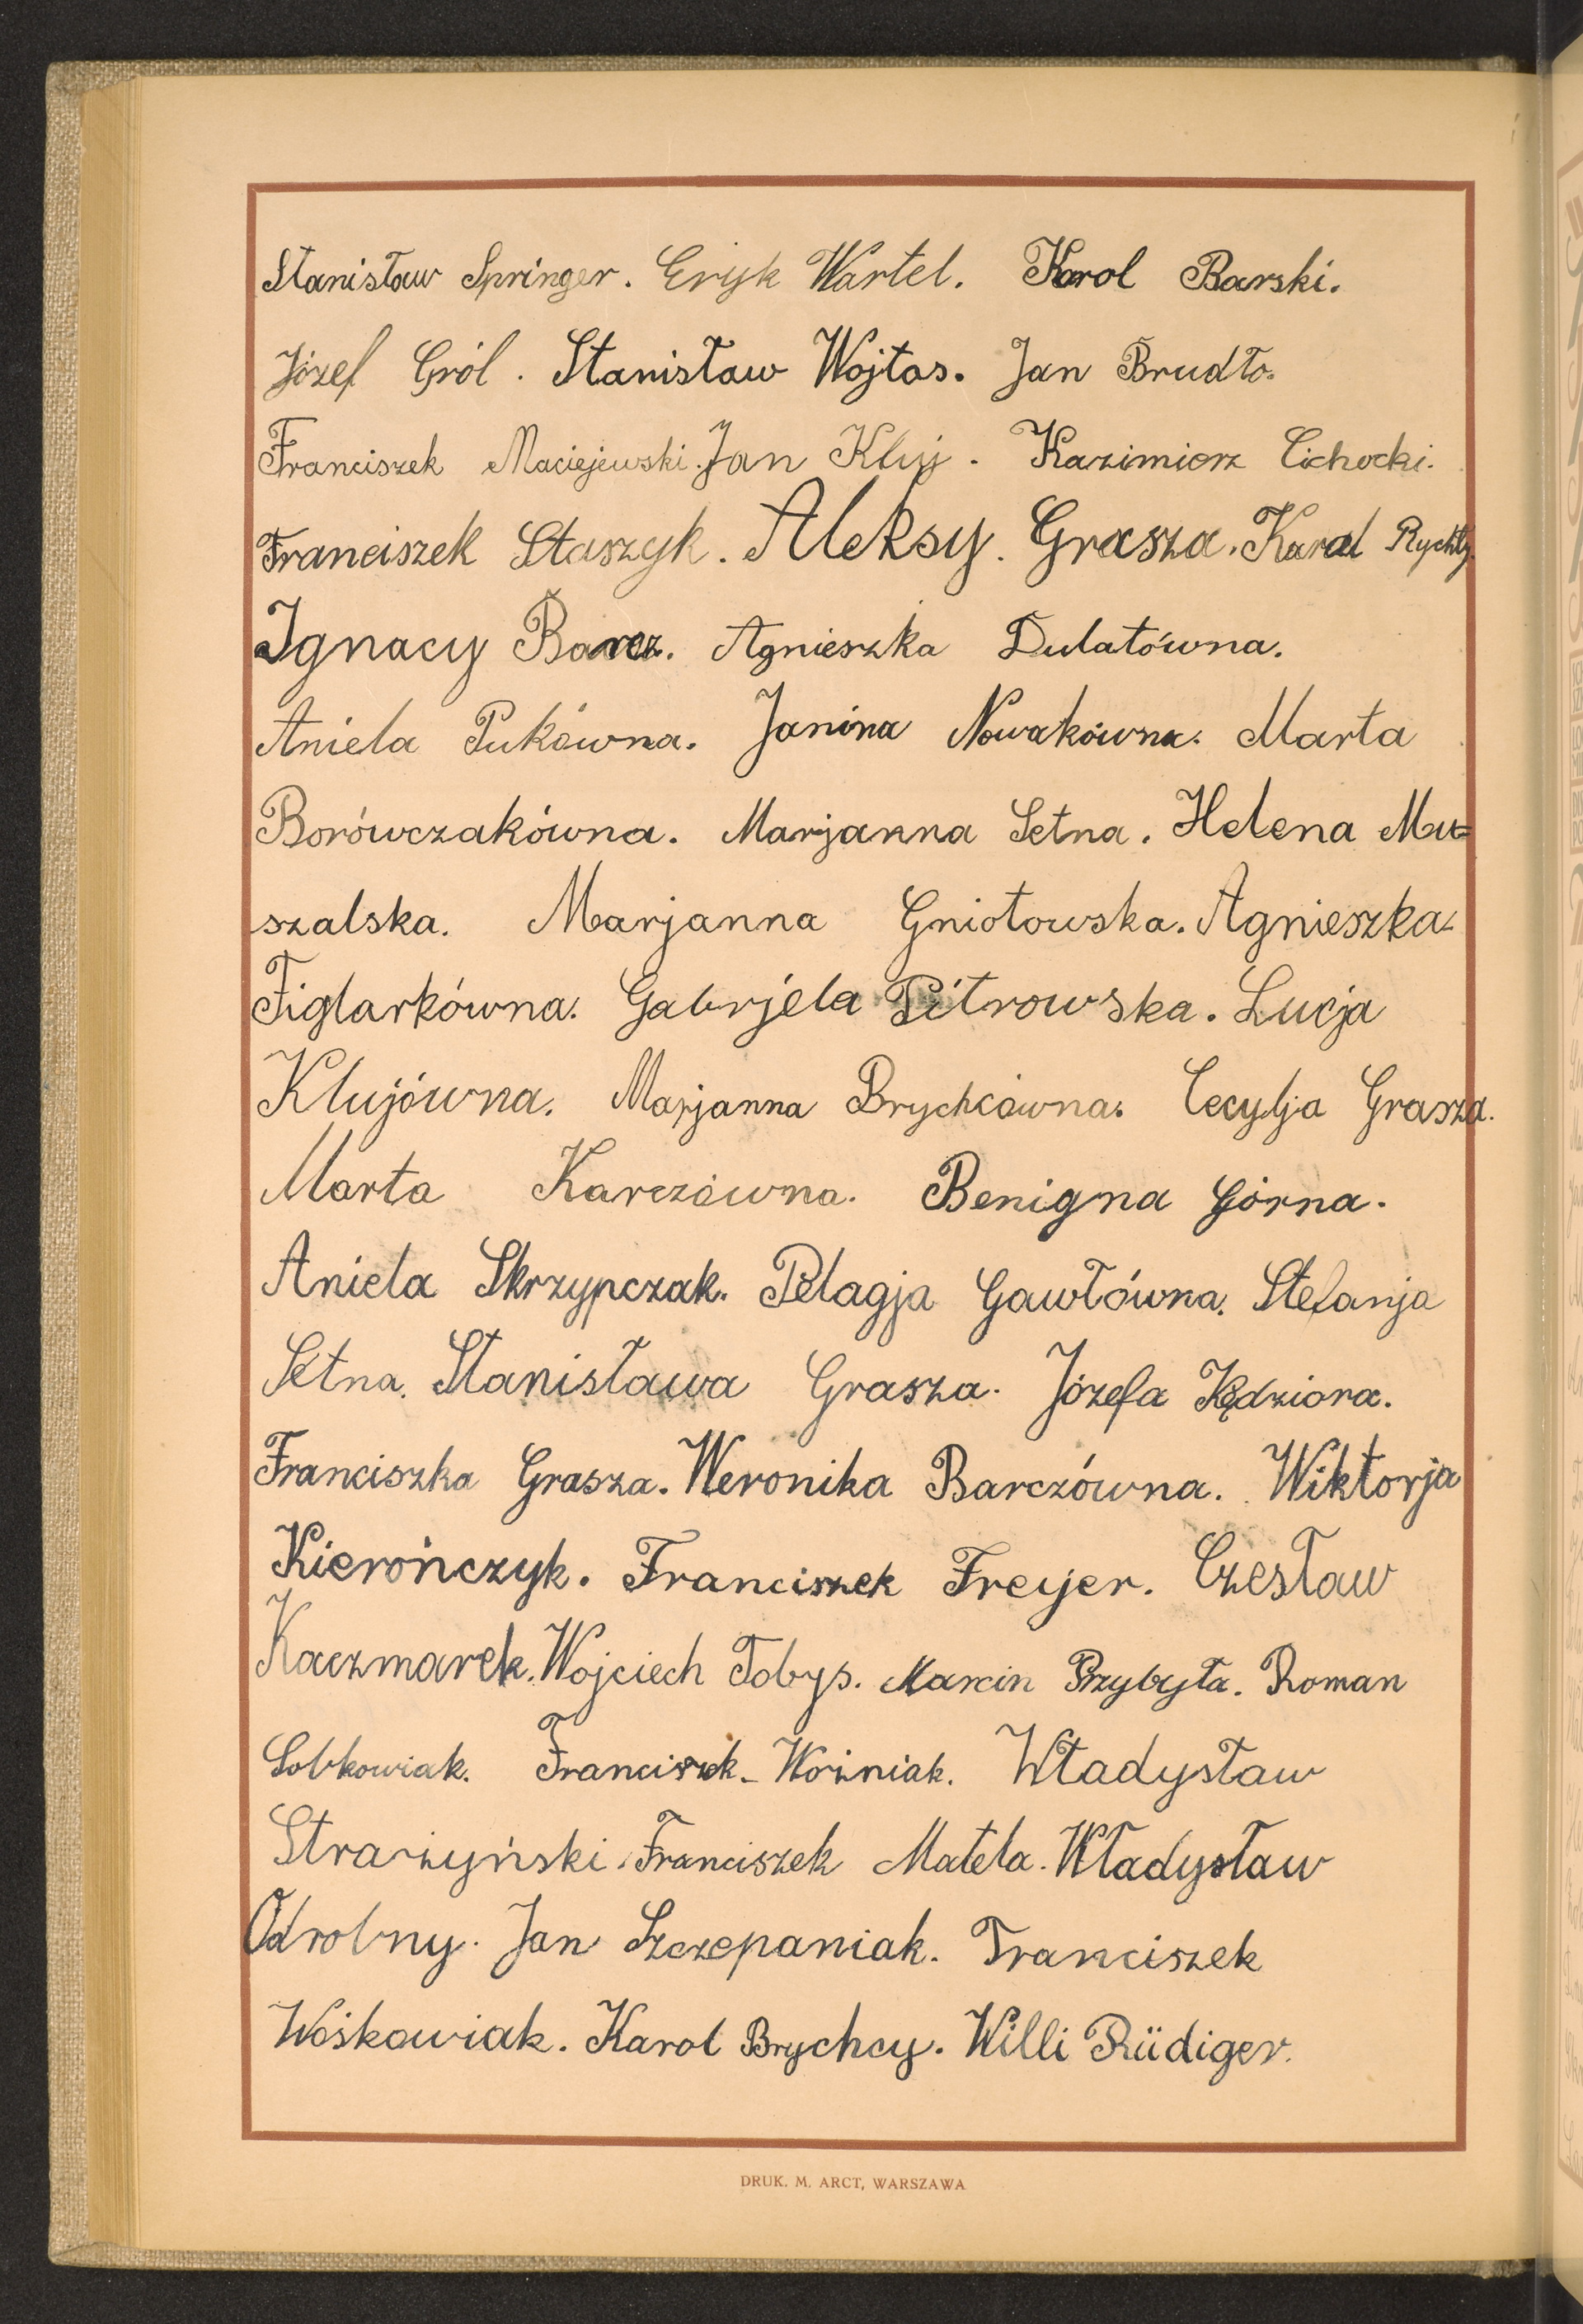 Stanisław Springer. Eryk Wartel. Karol Barski.
Józef Gról. Stanisław Wojtas. Jan Brudło.
Franciszek Maciejewski. Jan Kluj. Kazimierz Cichocki.
Franciszek Staszyk. Aleksy. Grasza. Karol Rychły.
Ignacy Barcz. Agnieszka Dulatówna.
Aniela Pukówna. Janina Nowakówna. Marta
Borówczakówna. Marjanna Setna. Helena Mu=
szalska. Marjanna Gniotowska. Agnieszka
Figlarkówna. Gabrjela Pitrowska. Lucja
Klujówna. Marjanna Brychcówna. Cecylja Grasza.
Marta Karczówna. Benigna Górna.
Aniela Skrzypczak. Pelagja Gawłówna. Stefanja
Setna. Stanisława Grasza. Józefa Kędziora.
Franciszka Grasza. Weronika Barczówna. Wiktorja
Kierończyk. Franciszek Freyer. Czesław
Kaczmarek. Wojciech Tobys. Marcin Przybyła. Roman
Sobkowiak. Franciszek Woźniak. Władysław
Strażyński. Franciszek Matela. Władysław
Odrobny. Jan Szczepaniak. Franciszek
Wośkowiak. Karol Brychcy. Willi Rüdiger.
DRUK. M. ARCT, WARSZAWA